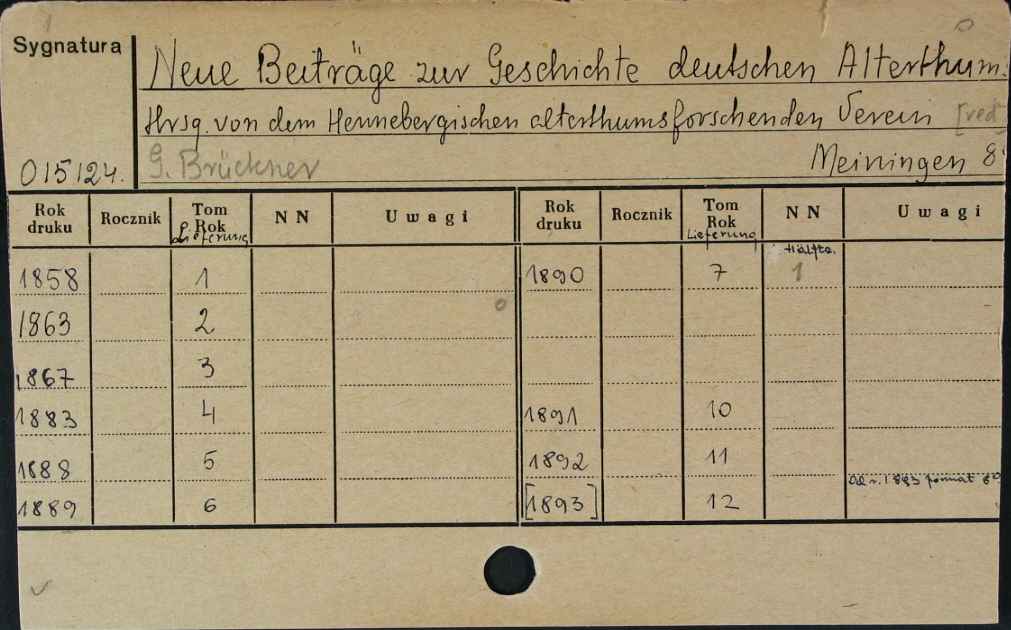 Sygnatura
Neue Beiträge zur Geschichte deutschen Alterthum.
Hrsg. von dem Hennebergischen alterthumsforschenden Verein [red
015124. G. Brückner Meiningen 8°
Rok druku Rocznik Tom Rok Lieferung NN Uwagi Rok druku Rocznik Tom Rok Lieferung NN Uwagi
Hälfte.
1858 1 1890 7 1
1863 2
1867 3
1883 4 1891 10
1888 5 1892 11
Od r. 1883 format 8°
1889 6 [1893] 12